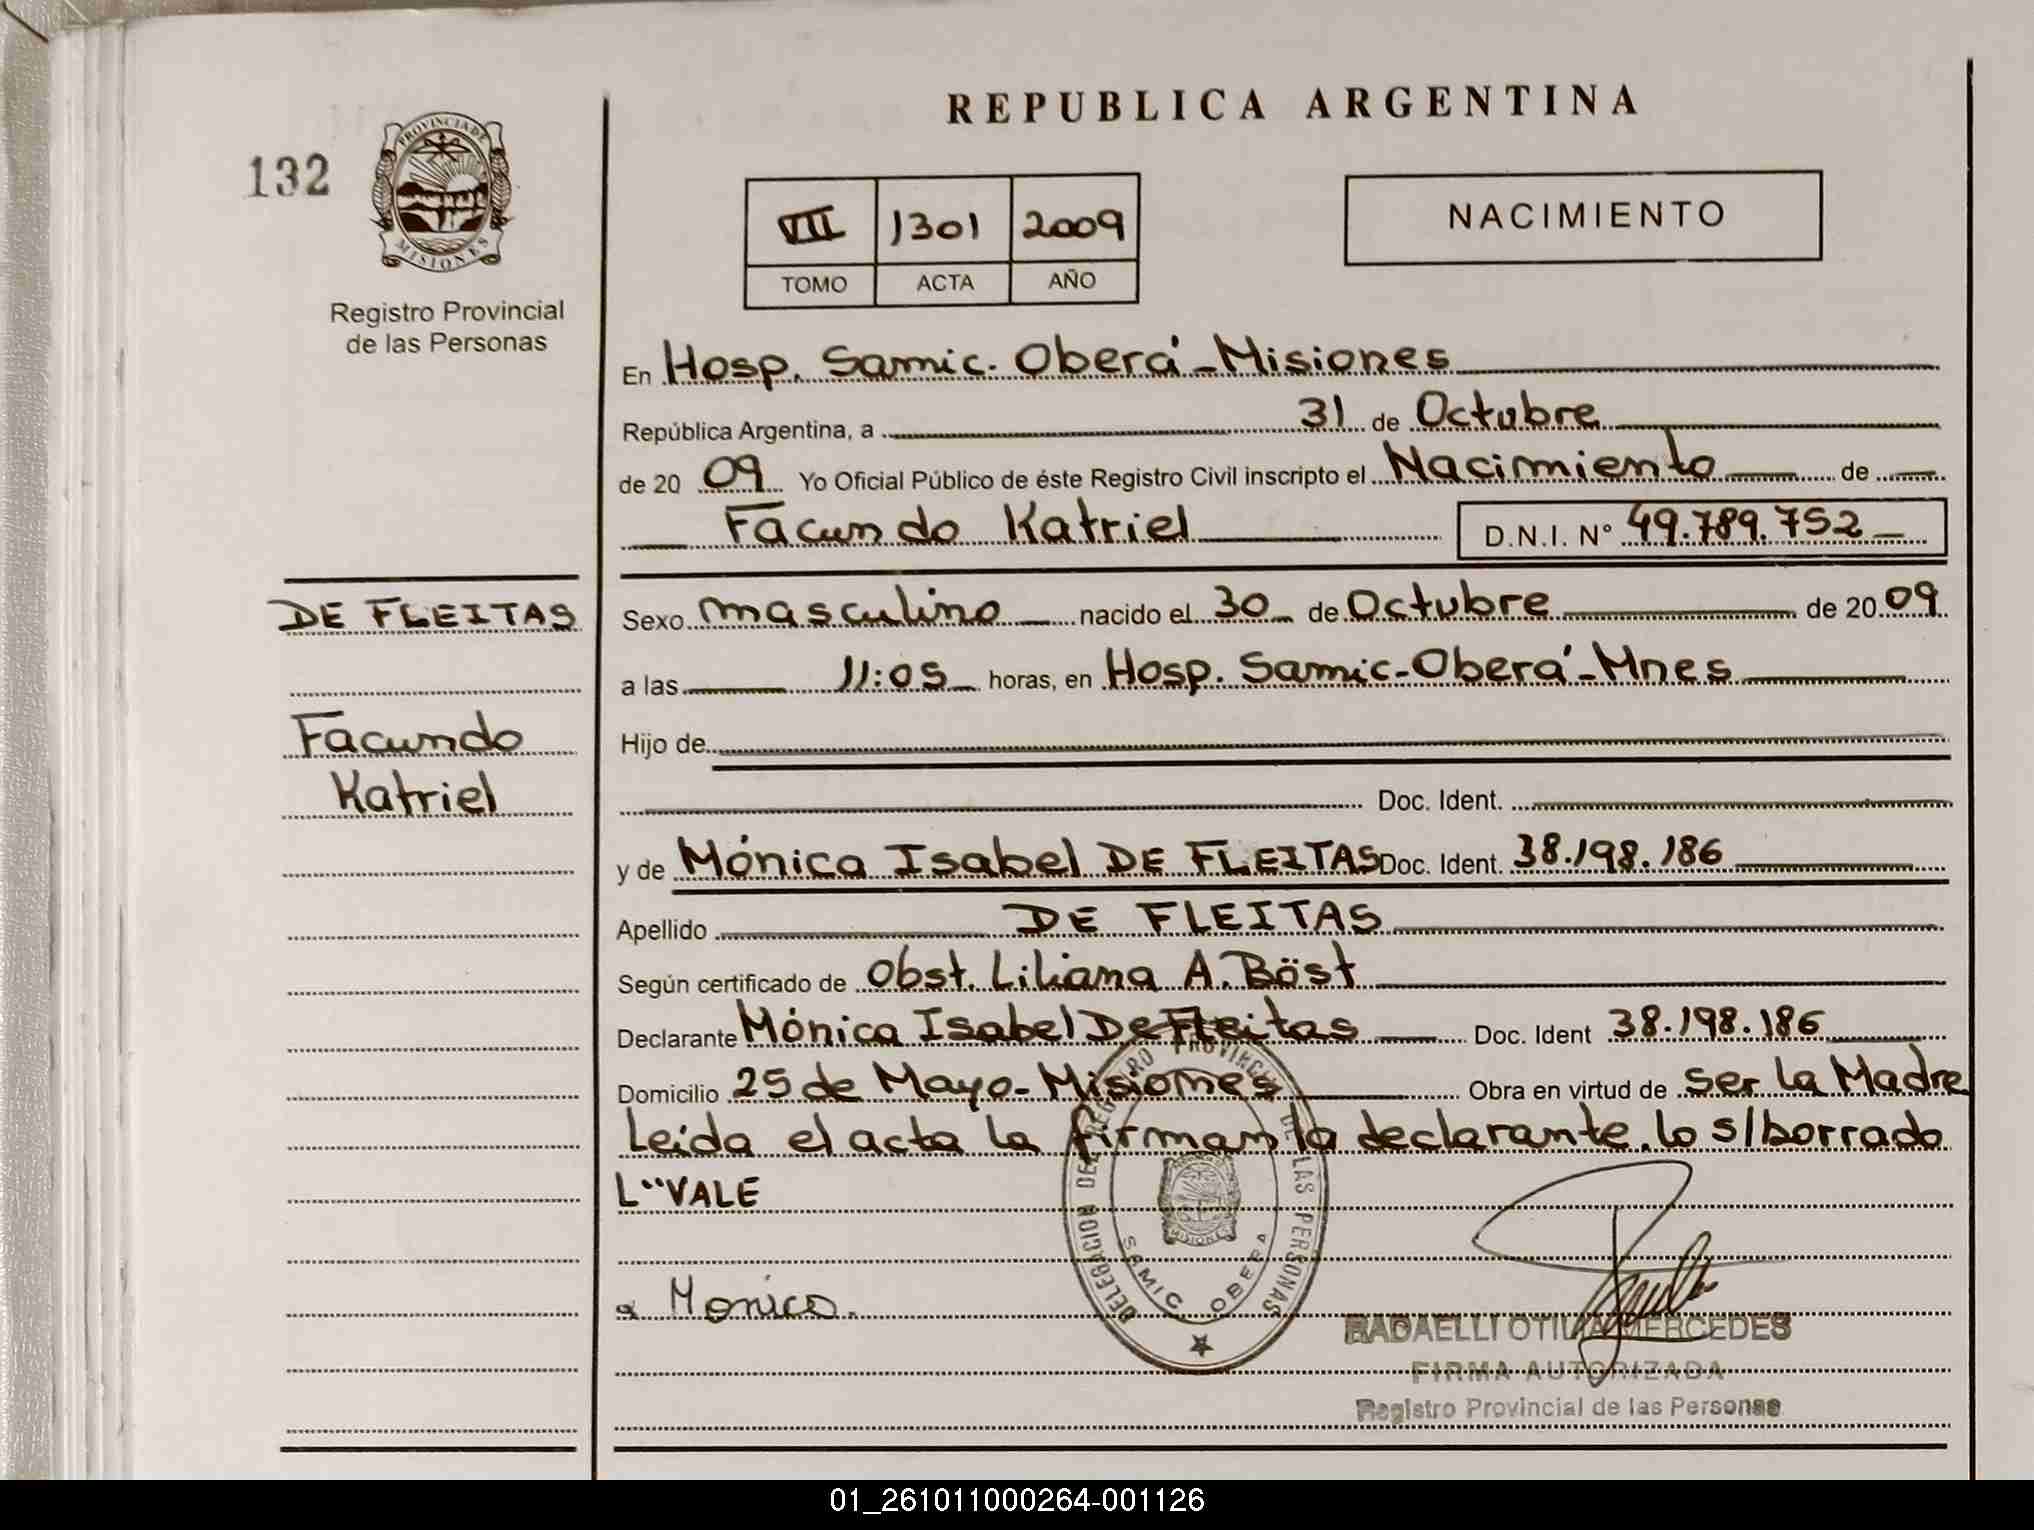 REPUBLICA ARGENTINA
132
PROVINCIA DE
MISIONES
Registro Provincial
de las Personas
VII 1301 2009
TOMO ACTA AÑO
NACIMIENTO
En Hosp. Samic. Oberá - Misiones
República Argentina, a 31 de Octubre
de 20 09 Yo Oficial Público de éste Registro Civil inscripto el Nacimiento de
Facundo Katriel D.N.I. Nº 49.789.752
DE FLEITAS
Facundo
Katriel
Sexo masculino nacido el 30 de Octubre de 20 09
a las 11:05 horas, en Hosp. Samic - Oberá - Mnes
Hijo de
Doc. Ident.
y de Mónica Isabel DE FLEITAS Doc. Ident. 38.198.186
Apellido DE FLEITAS
Según certificado de Obst. Liliana A. Böst
Declarante Mónica Isabel De Fleitas Doc. Ident 38.198.186
Domicilio 25 de Mayo - Misiones Obra en virtud de ser la Madre
Leida el acta la firman la declarante. lo s/borrado
L" VALE
Monica.
DELEGACION DEL REGISTRO PROVINCIAL DE LAS PERSONAS
MISIONES
SAMIC OBERA
RADAELLI OTILIA MERCEDES
FIRMA AUTORIZADA
Registro Provincial de las Personas
01_261011000264-001126